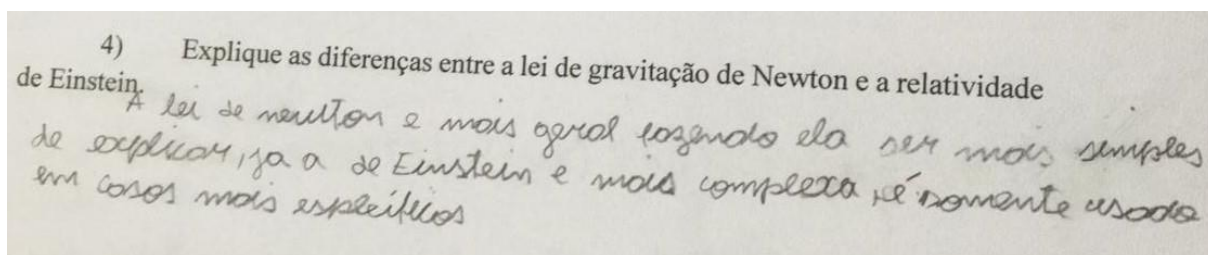 4) Explique as diferenças entre a lei de gravitação de Newton e a relatividade
de Einstein.
A lei de neuton e mais geral fazendo ela ser mais simples
de explicar, ja a de Einstein e mais complexa, é somente usada
em casos mais espeificos